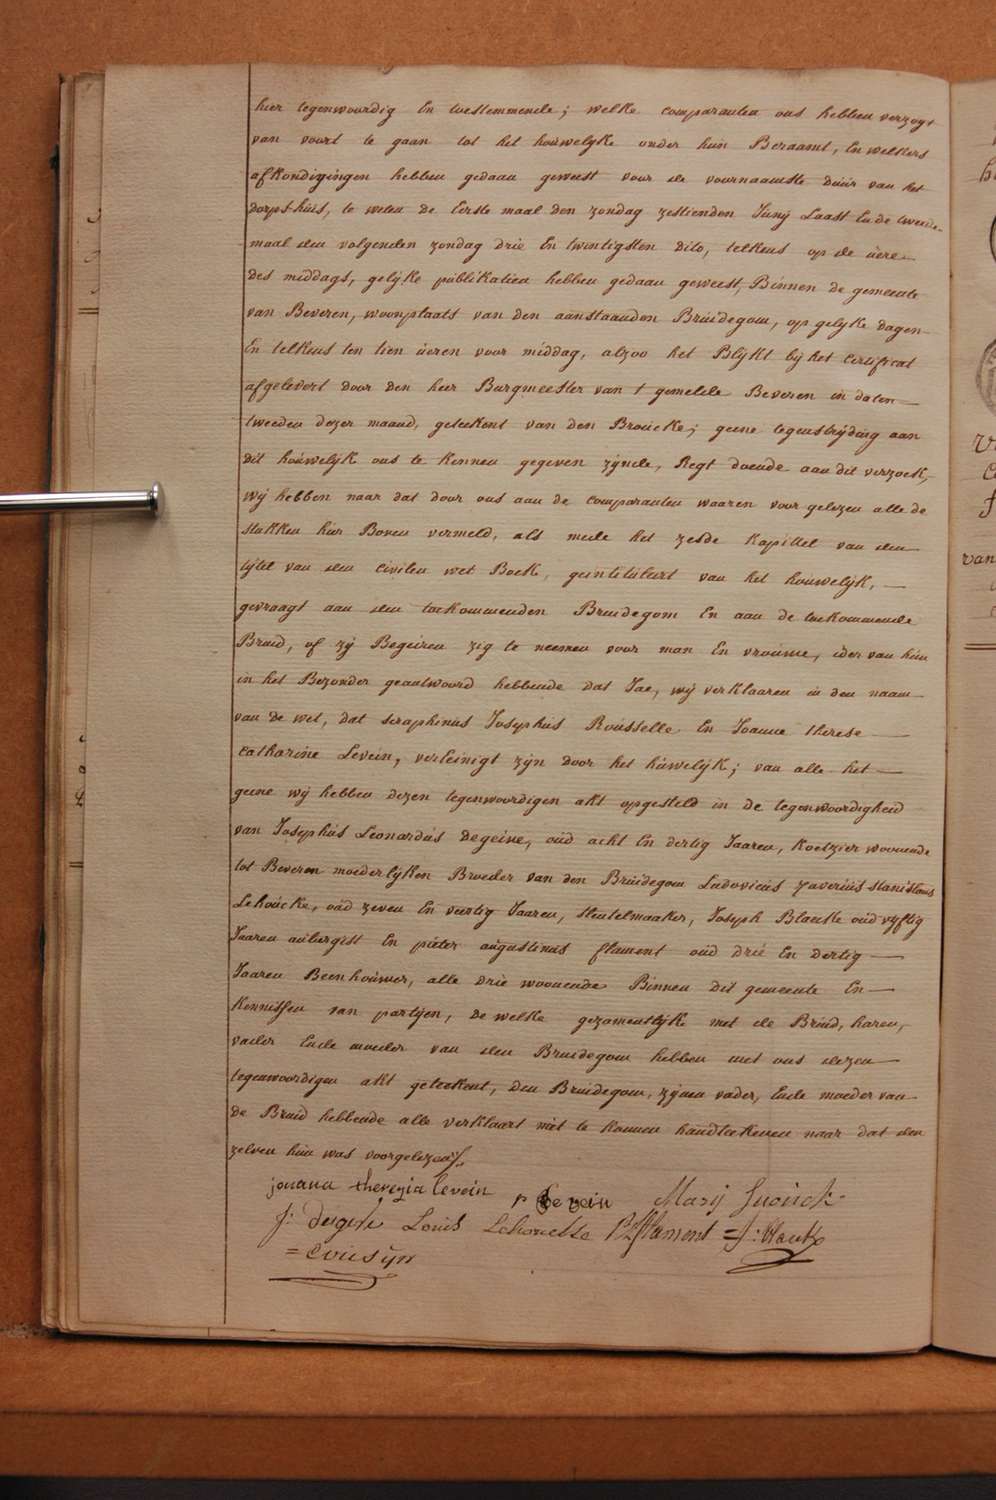 hier tegenwoordig En toestemmende; welke comparanten ons hebben verzogt
van voort te gaan tot het houwelijke onder hun Beraamt, En welkers
afkondigingen hebben gedaan geweest voor de voornaamste deúúr van het
dorps-húis, te weten de Eerste maal den zondag zestienden Juny Laast En de tweede
maal den volgenden zondag drie En twintigsten dito, telkens op de úúre
des middags, gelijke públikatien hebben gedaan geweest, Binnen de gemeente
van Beveren, woonplaats van den aanstaanden Brúidegom, op gelyke dagen
En telkens ten tien úeren voor middag, alzoo het Blijkt bij het certificat
afgelevert door den heer Burgmeester van t gemelde Beveren in daten
tweeden dezer maand, geteekent van den Broúcke; geene tegenstrijding aan
dit hoúwelijk ons te kennen gegeven zijnde, Regt doende aan dit verzoek,
wij hebben naar dat door ons aan de comparanten waaren voorgelezen alle de
stukken hier Boven vermeld, als mede het zesde kapittel van den
tijtel van den civilen wet Boek, geintitúleert van het houwelijk,
gevraagt aan den toekommenden Bruidegom En aan de toekommende
Bruid, of zij Begeiren zig te neemen voor man En vroúwe, ider van hún
in het Bezonder geantwoord hebbende dat Jae, wij verklaaren in den naam
van de wet, dat seraphinus Josephus Roússelle En Joanna therese
catharine Levein, vereinigt zijn door het húwelijk; van alle het
geene wij hebben dezen tegenwoordigen akt opgesteld in de tegenwoordigheid
van Josephús Leonardús Degeine, oúd acht En dertig Jaaren, koetzier woonende
tot Beveren moederlijken Broeder van den Brúidegom Ludovicús Xaveriús stanislaus
Lehoúcke, oúd zeven En veertig Jaaren, sleutelmaaker, Joseph Blaucke oúd vyftig
Jaaren aúbergist En pieter aúgustinus flament oúd drie En dertig
Jaaren Beenhoúwer, alle drie woonende Binnen dit gemeente En
kennissen van partijen, de welke gezamentlijke met de Brúid, haren,
vader Ende moeder van den Bruidegom hebben met ons dezen
tegenwoordigen akt geteekent, den Bruidegom, zijnen vader, Ende moeder van
de Bruid hebbende alle verklaart niet te konnen handteekenen naar dat den
zelven hún was voorgelezen
joúana therezia levein P Levein Marij
J: Degeine Louis Lehoucke P flament = J: Blaucke
= Coúsijn